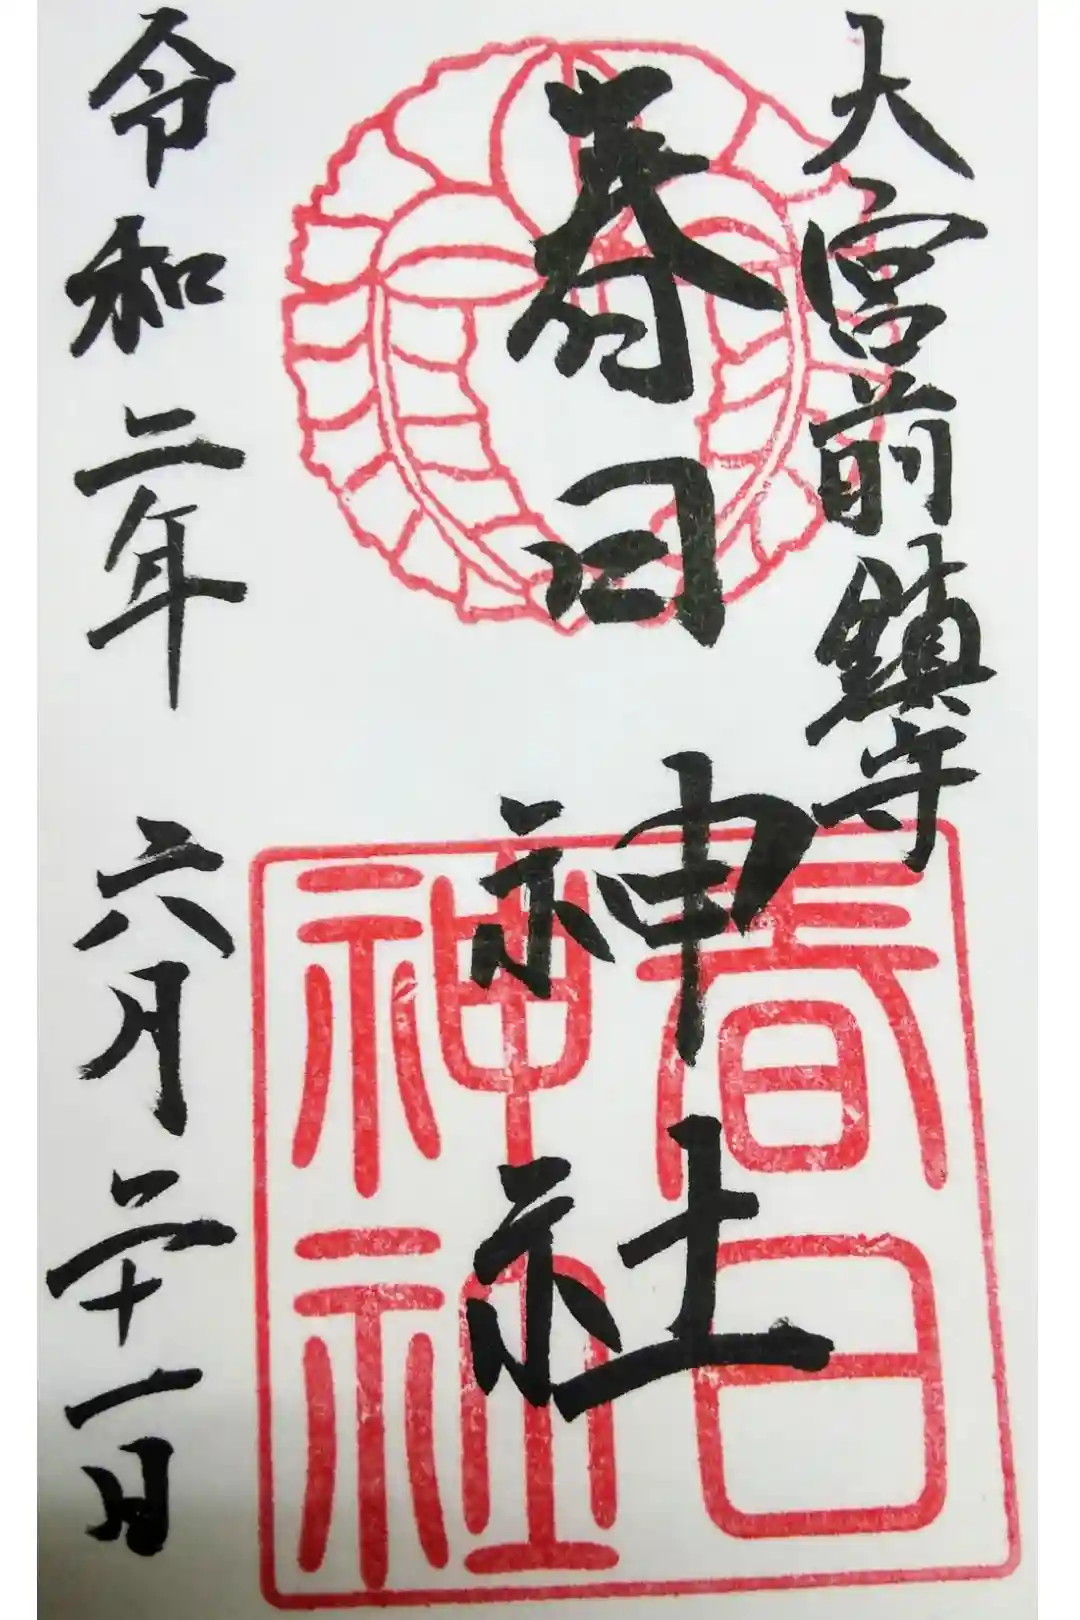 大宮前鎮守
春日神社
春日
神社
令和二年六月二十一日